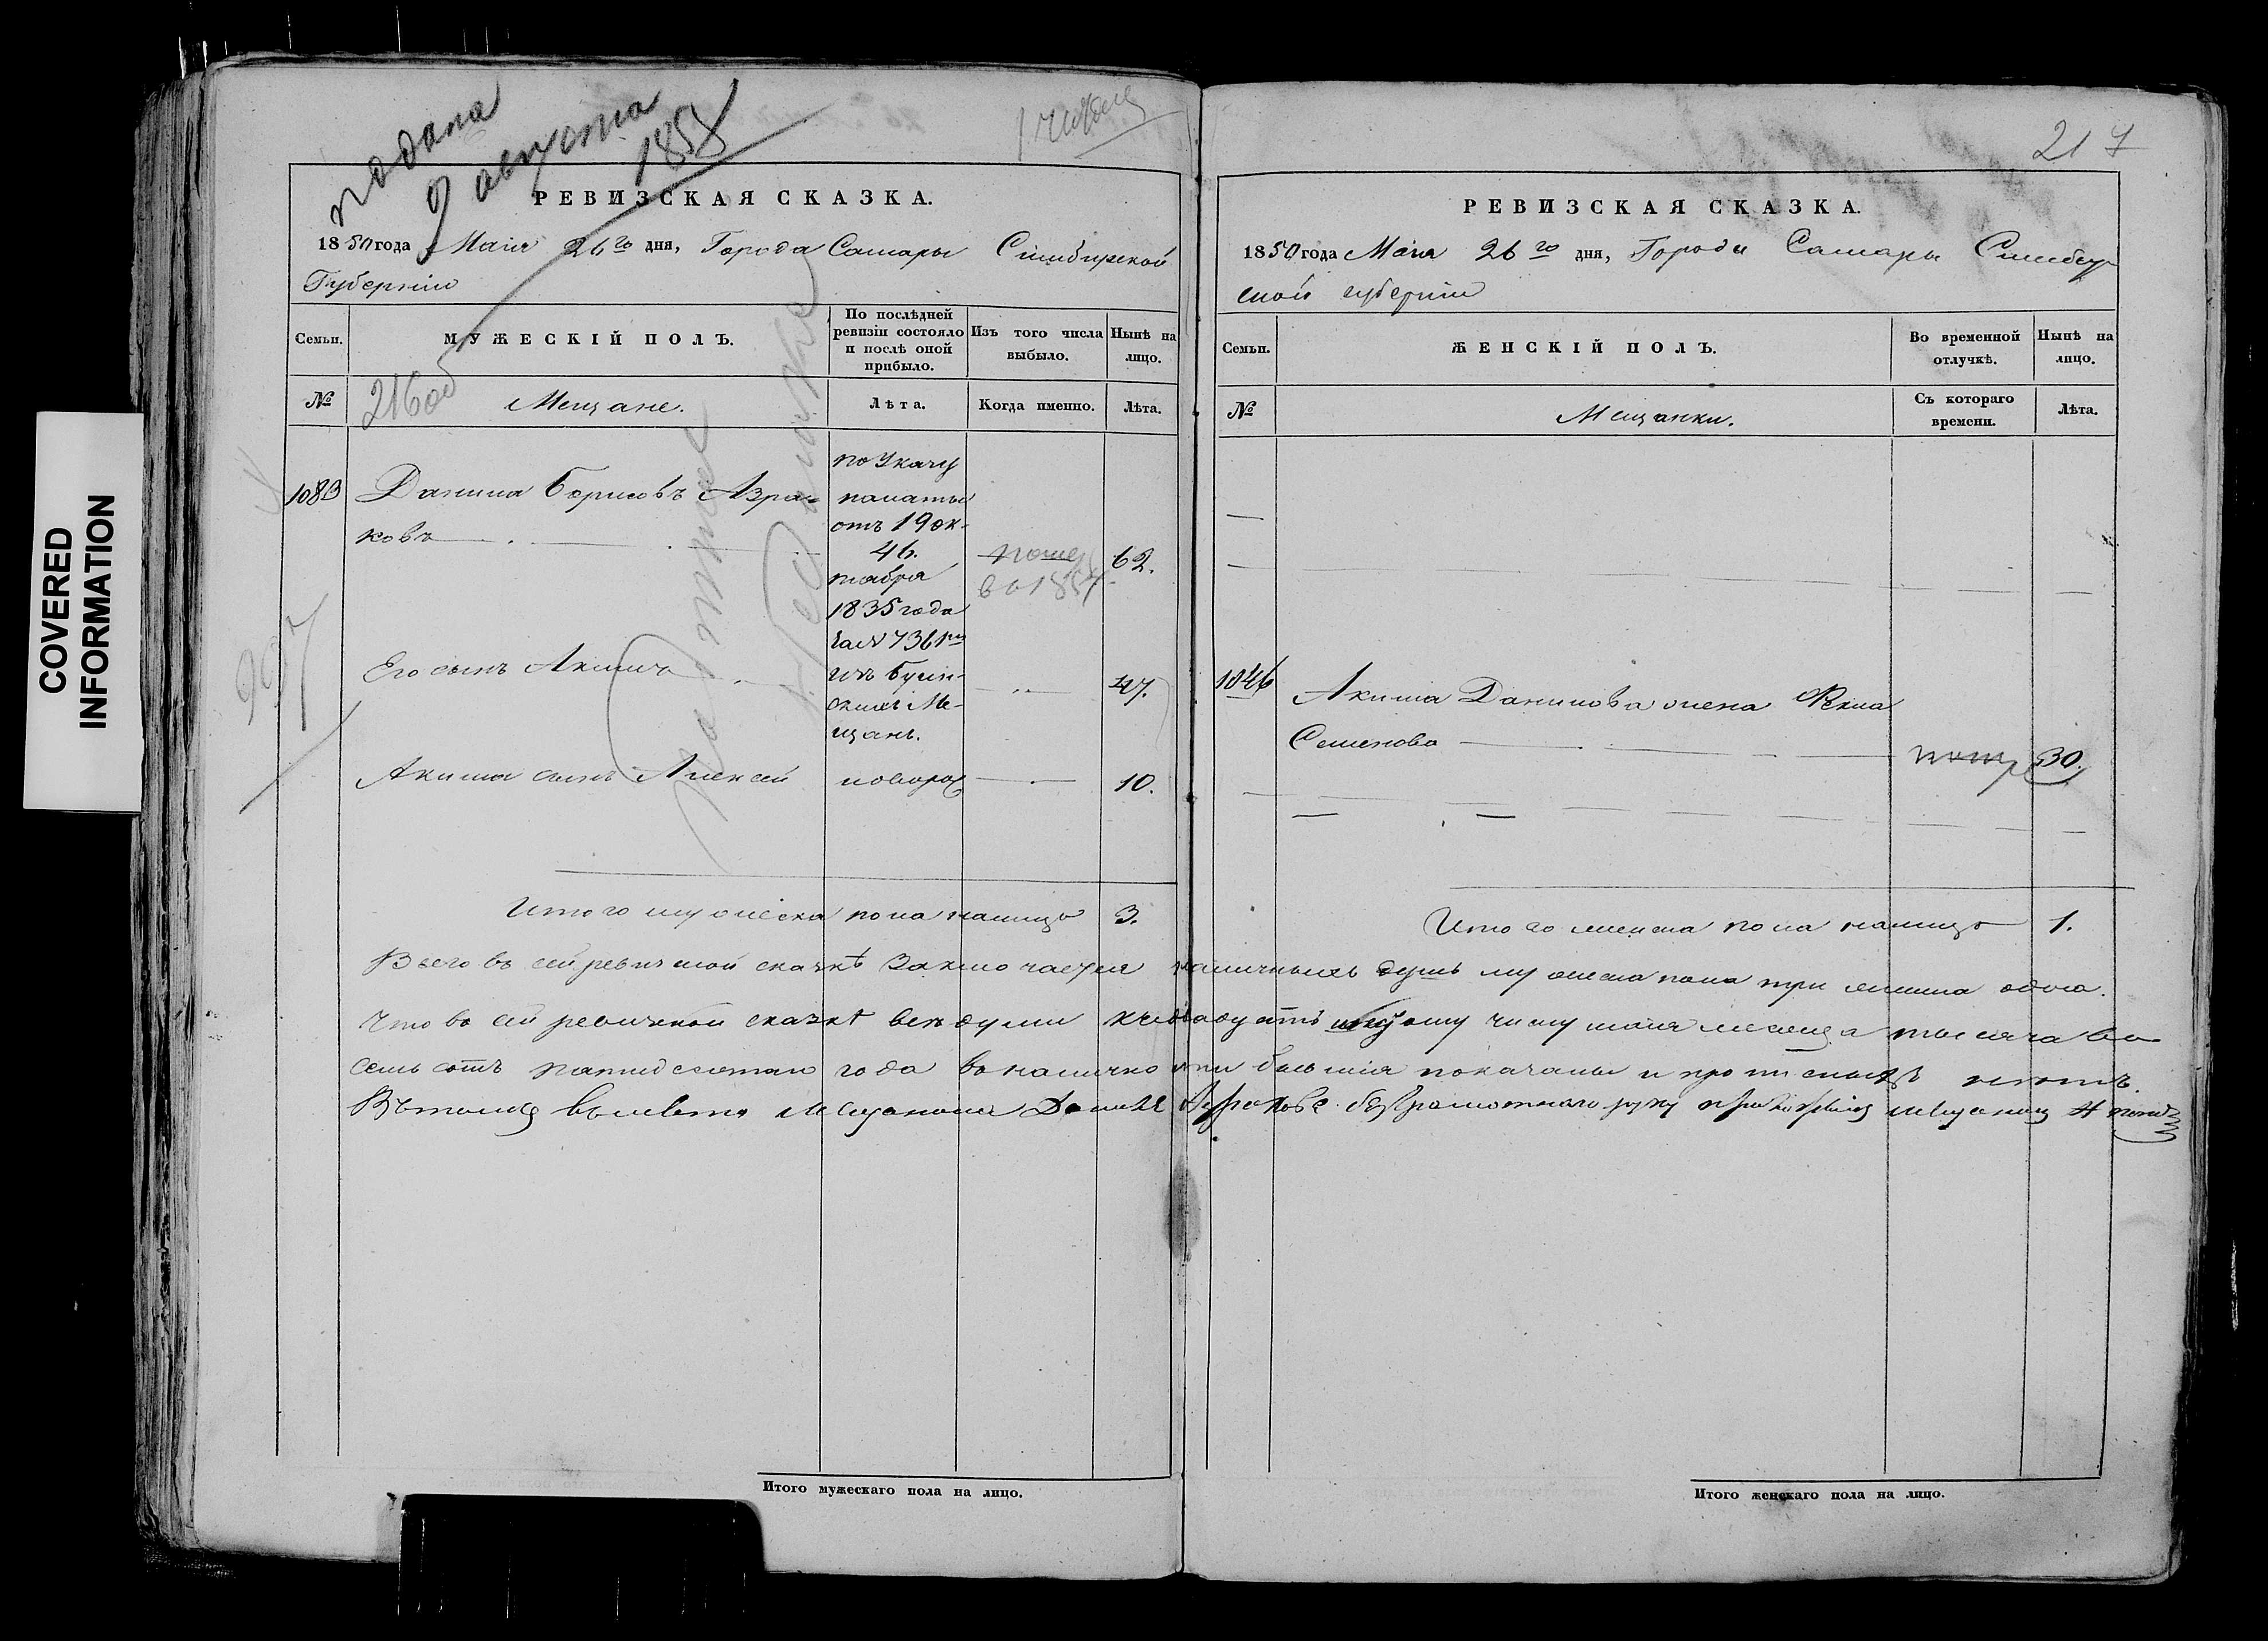 COVERED
INFORMATION
подана
9 августа
1858
217
РЕВИЗСКАЯ СКАЗКА.
1850 года Маія 26го дня, Города Самары Симбирской
Губерніи
Семьи.
МУЖЕСКІЙ ПОЛЪ.
По послѣдней
ревизіи состояло
и послѣ оной
прибыло.
Изъ того числа
выбыло.
Нынѣ на
лицо.
№
216об
Мещане.
Лѣта.
Когда именно.
Лѣта.
1083
Данила Борисовъ Азра-
ковъ
по указу
палаты
отъ 19 ок-
46.
тября
1835 года
за N 7361
изъ
Ме-
щанъ.
62.
Его сынъ Акимъ
47.
Акима сынъ Алексей
новорож
10.
Итого мужеска пола налицо 3.
РЕВИЗСКАЯ СКАЗКА.
1850 года Маія 26го дня, Города Самары Симбир
ской губерніи
Семьи.
ЖЕНСКІЙ ПОЛЪ.
Во временной
отлучкѣ.
Нынѣ на
лицо.
№
Мещанки.
Съ котораго
времени.
Лѣта.
1046
Акима Данилова жена
Семенова
30.
Итого женска пола налицо 1.
Всего въ сей ревизской сказкѣ заключается наличныхъ душъ мужеска пола три женска одна.
Что во сей ревизской сказкѣ все души къ двадцать шестому числу маія месяца тысяча во
семь сотъ пятидесятаго года во наличности бывшія показаны и прописныхъ нетъ.
Въ томъ вместо Мещанина Данилы Азракова безграмотнаго руку приложилъ мещанинъ
Итого мужескаго пола на лицо.
Итого женскаго пола на лицо.